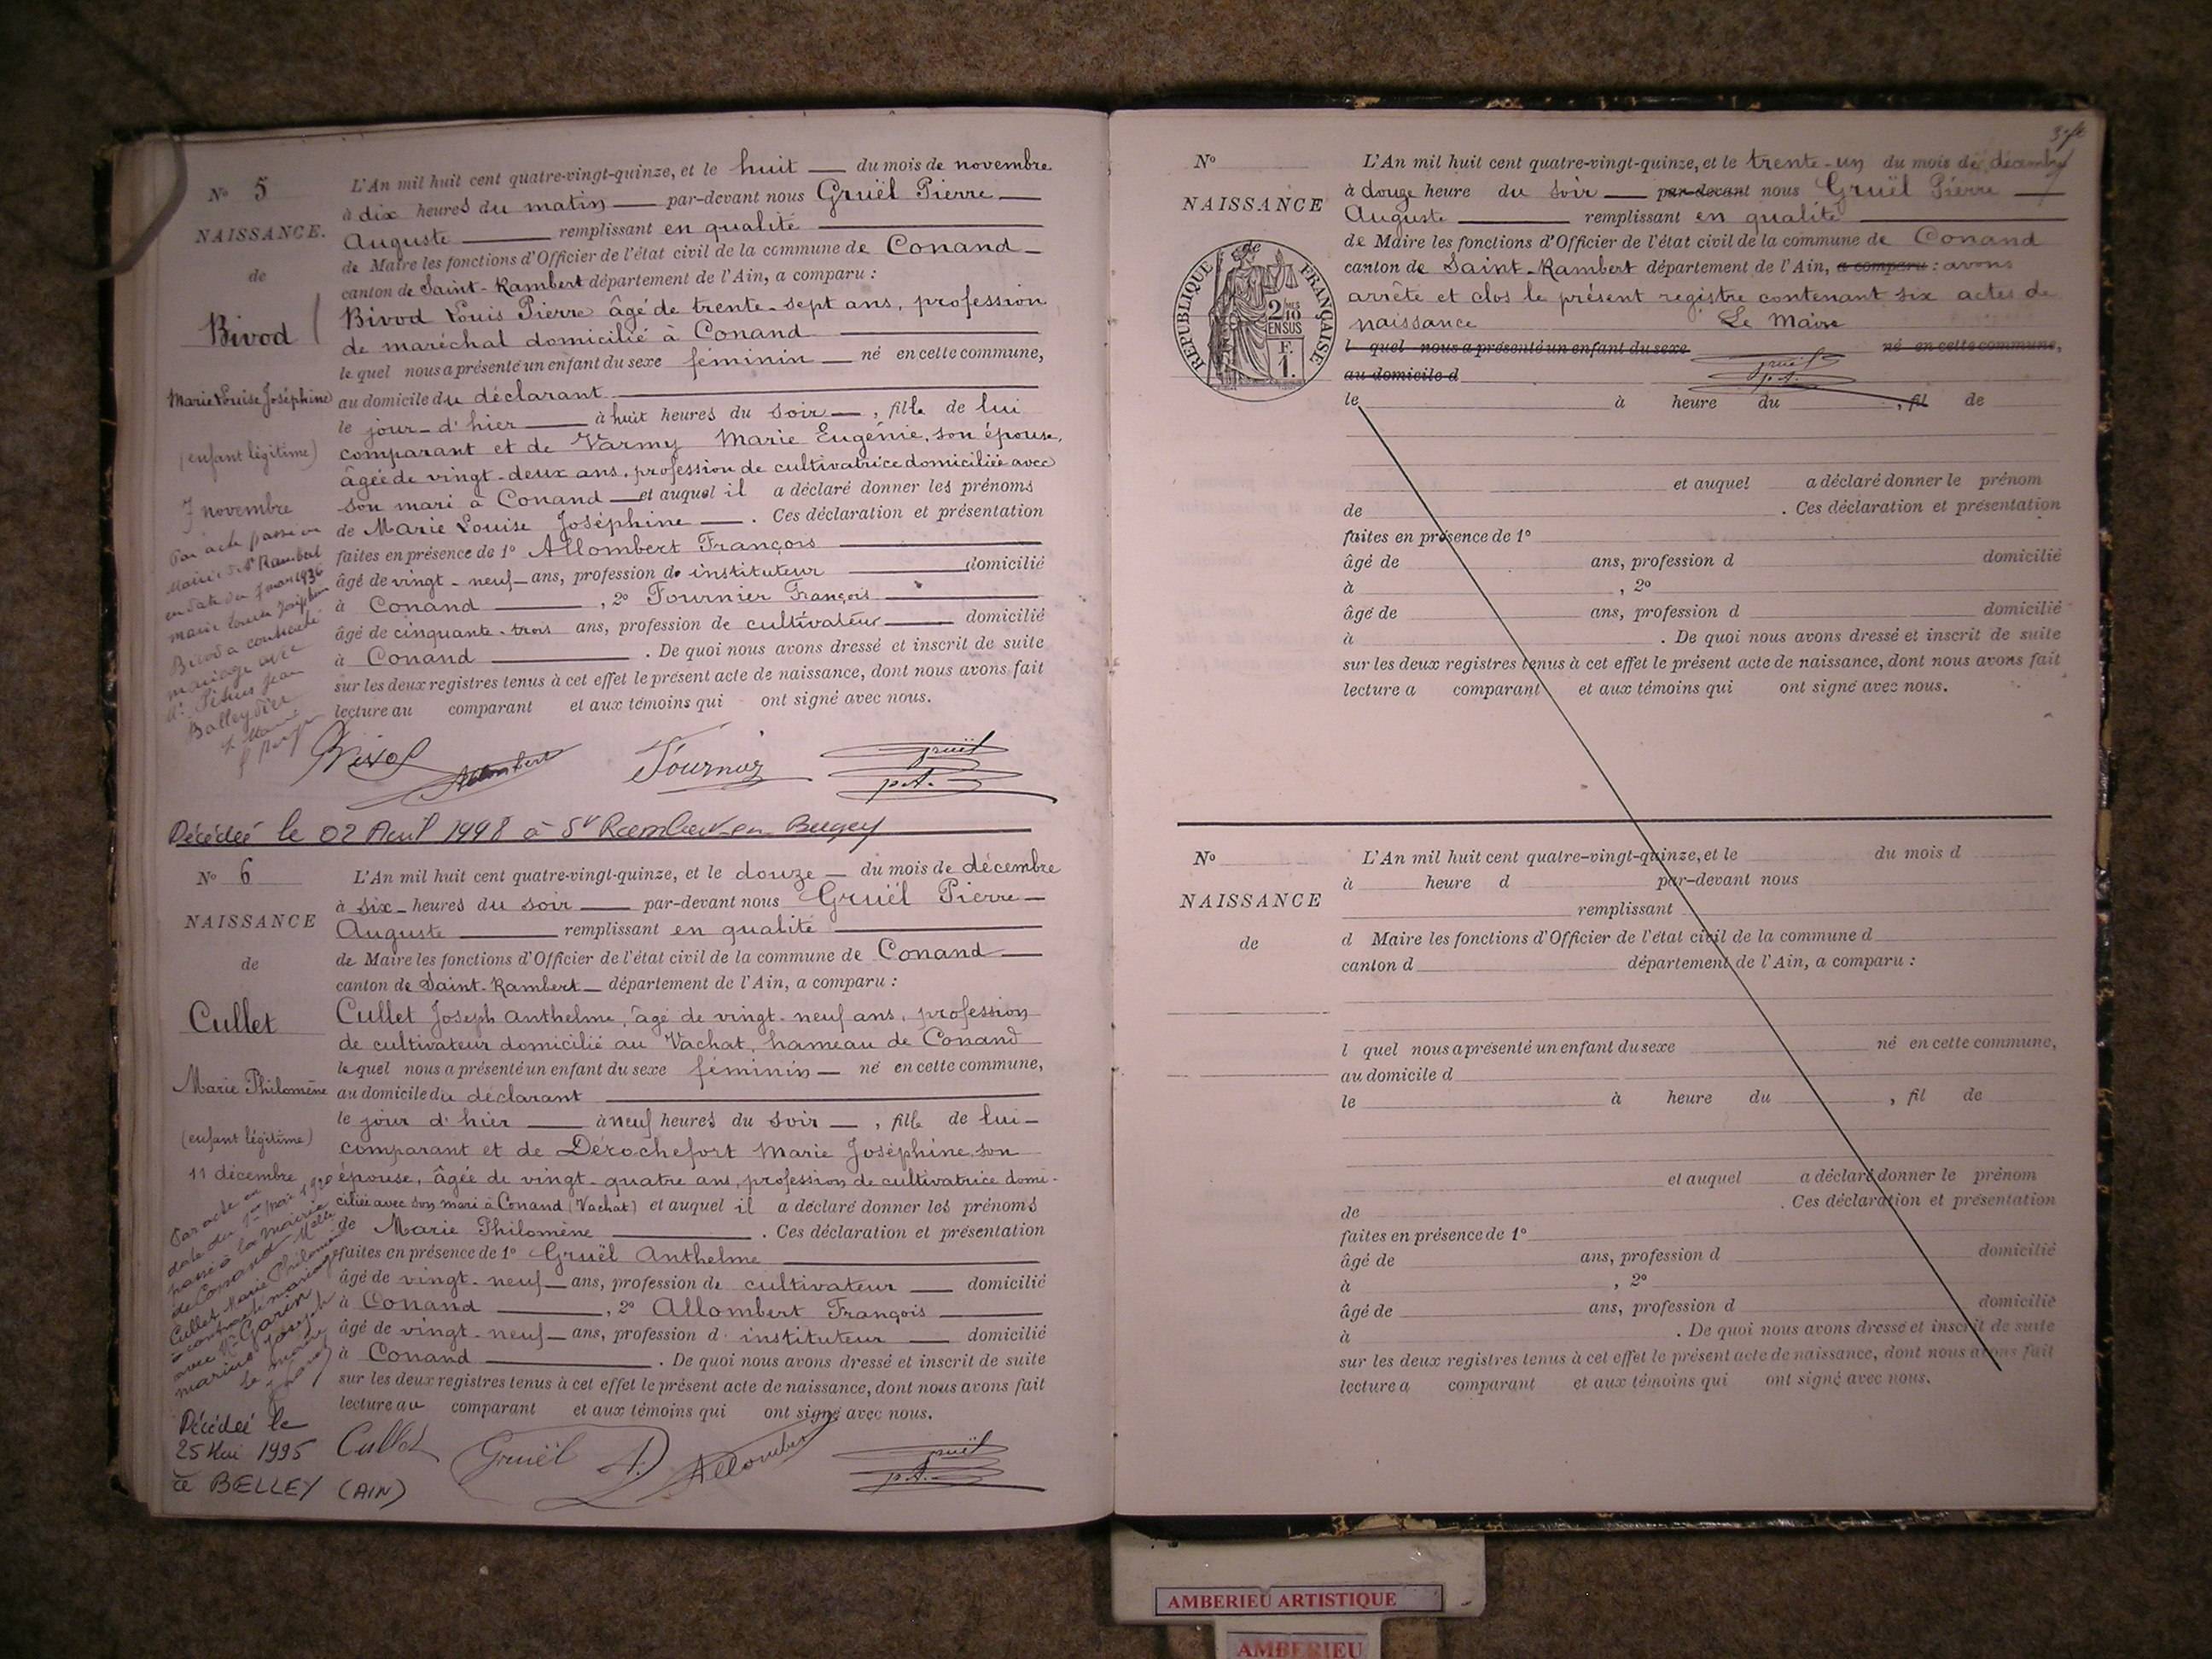 N° 5
NAISSANCE.
de
Bivod
Marie Louise Joséphine
(enfant légitime)
7 novembre
Par acte passé en
Mairie de St Rambert
en date du 7 mars 1936
Marie Louise Joséphine
Bivod a contracté
mariage avec
Jean
Balleydier
L'An mil huit cent quatre-vingt-quinze, et le huit du mois de novembre
à dix heures du matin par-devant nous Gruël Pierre
Auguste remplissant en qualité
de Maire les fonctions d'Officier de l'état civil de la commune de Conand
canton de Saint-Rambert département de l'Ain, a comparu :
Bivod Louis Pierre âgé de trente-sept ans, profession
de maréchal domicilié à Conand
lequel nous a présenté un enfant du sexe féminin né en cette commune,
au domicile du déclarant
le jour d'hier à huit heures du soir, fille de lui
comparant et de Varmy Marie Eugénie, son épouse,
âgée de vingt-deux ans, profession de cultivatrice domiciliée avec
son mari à Conand et auquel il a déclaré donner les prénoms
de Marie Louise Joséphine. Ces déclaration et présentation
faites en présence de 1° Allombert François
âgé de vingt-neuf ans, profession de instituteur domicilié
à Conand, 2° Fournier François
âgé de cinquante-trois ans, profession de cultivateur domicilié
à Conand. De quoi nous avons dressé et inscrit de suite
sur les deux registres tenus à cet effet le présent acte de naissance, dont nous avons fait
lecture au comparant et aux témoins qui ont signé avec nous.
Bivod Allombert Fournier Gruël p.A.
Décédée le 02 Avril 1998 à St Rambert-en-Bugey
N° 6
NAISSANCE
de
Cullet
Marie Philomène
(enfant légitime)
11 décembre
Par acte en
date du 1er mai 1920
passé à la mairie
de Conand Melle
Cullet Marie Philomène
a contracté mariage
avec Mr Garin
marius Joseph
Le maire
Décédée le
25 Mai 1995
à BELLEY (AIN)
L'An mil huit cent quatre-vingt-quinze, et le douze du mois de décembre
à six heures du soir par-devant nous Gruël Pierre
Auguste remplissant en qualité
de Maire les fonctions d'Officier de l'état civil de la commune de Conand
canton de Saint-Rambert département de l'Ain, a comparu :
Cullet Joseph Anthelme, âgé de vingt-neuf ans, profession
de cultivateur domicilié au Vachat, hameau de Conand
lequel nous a présenté un enfant du sexe féminin né en cette commune,
au domicile du déclarant
le jour d'hier à neuf heures du soir, fille de lui-
comparant et de Dérochefort Marie Joséphine, son
épouse, âgée de vingt-quatre ans, profession de cultivatrice domi-
ciliée avec son mari à Conand (Vachat) et auquel il a déclaré donner les prénoms
de Marie Philomène. Ces déclaration et présentation
faites en présence de 1° Gruël Anthelme
âgé de vingt-neuf ans, profession de cultivateur domicilié
à Conand, 2° Allombert François
âgé de vingt-neuf ans, profession d instituteur domicilié
à Conand. De quoi nous avons dressé et inscrit de suite
sur les deux registres tenus à cet effet le présent acte de naissance, dont nous avons fait
lecture au comparant et aux témoins qui ont signé avec nous.
Cullet Gruël A. Allombert Gruël p.A.
N°
NAISSANCE
de
RÉPUBLIQUE FRANÇAISE
2/10 EN SUS
F. 1.
L'An mil huit cent quatre-vingt-quinze, et le trente-un du mois de décembre
à douze heure du soir par-devant nous Gruël Pierre
Auguste remplissant en qualité
de Maire les fonctions d'Officier de l'état civil de la commune de Conand
canton de Saint-Rambert département de l'Ain, a comparu : avons
arrête et clos le présent registre contenant six actes de
naissance Le Maire
l quel nous a présenté un enfant du sexe né en cette commune,
au domicile d Gruël p.A.
le à heure du , fil de
et auquel a déclaré donner le prénom
de . Ces déclaration et présentation
faites en présence de 1°
âgé de ans, profession d domicilié
à , 2°
âgé de ans, profession d domicilié
à . De quoi nous avons dressé et inscrit de suite
sur les deux registres tenus à cet effet le présent acte de naissance, dont nous avons fait
lecture a comparant et aux témoins qui ont signé avec nous.
N°
NAISSANCE
de
L'An mil huit cent quatre-vingt-quinze, et le du mois d
à heure d par-devant nous
remplissant
d Maire les fonctions d'Officier de l'état civil de la commune d
canton d département de l'Ain, a comparu :
l quel nous a présenté un enfant du sexe né en cette commune,
au domicile d
le à heure du , fil de
et auquel a déclaré donner le prénom
de . Ces déclaration et présentation
faites en présence de 1°
âgé de ans, profession d domicilié
à , 2°
âgé de ans, profession d domicilié
à . De quoi nous avons dressé et inscrit de suite
sur les deux registres tenus à cet effet le présent acte de naissance, dont nous avons fait
lecture a comparant et aux témoins qui ont signé avec nous.
AMBERIEU ARTISTIQUE
AMBERIEU